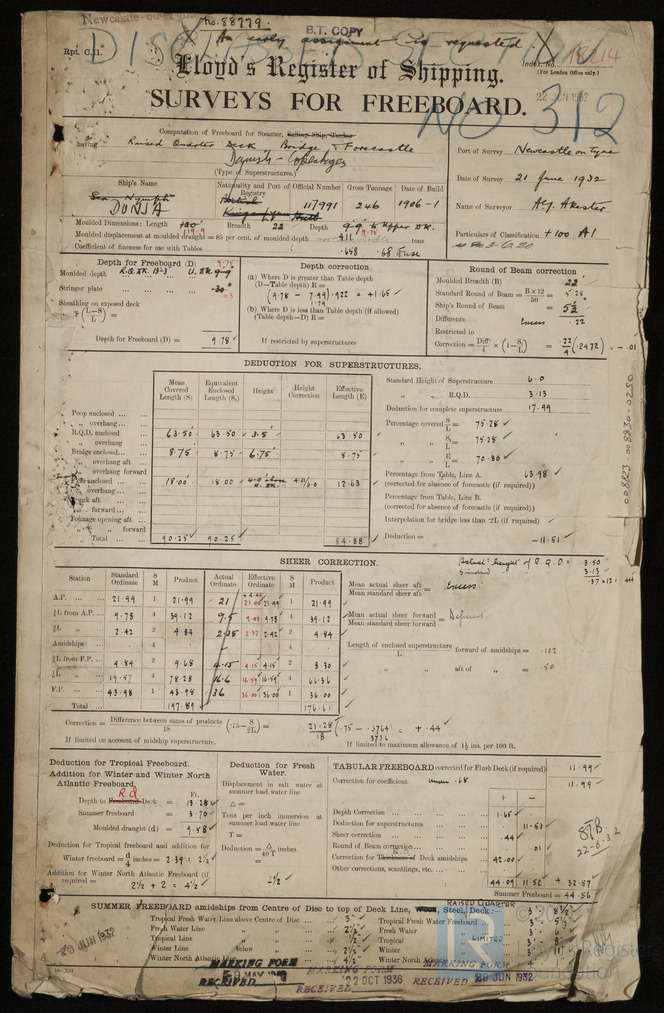 Newcastle-on-Tyne No. 88779.
B.T. COPY
An early assignment is requested
Rpt. C.11.
Index. No. 18214
(For London Office only.)
Lloyd's Register of Shipping.
22 JUN 1932
SURVEYS FOR FREEBOARD.
No 312
Computation of Freeboard for Steamer, Sailing Ship, Tanker
having Raised Quarter Deck, Bridge & Forecastle
Danish - Copenhagen
(Type of Superstructures.)
Port of Survey Newcastle on Tyne
Date of Survey 21 June 1932
Name of Surveyor
Particulars of Classification +100 A1
Ship's Name
Nationality and Port of Registry
Official Number
Gross Tonnage
Date of Build
Sea Nymph
DONIA
British
117991
246
1906-1
Moulded Dimensions: Length 120' Breadth 22 Depth 9-9 to upper DK.
119.9 9.75
Moulded displacement at moulded draught = 85 per cent. of moulded depth 411 tons
Coefficient of fineness for use with Tables .658 .68 Fuse
Depth for Freeboard (D) 9.75
Moulded depth R.Q. DK. 13-3 U. DK. 9-9
Stringer plate .30"
.03
Sheathing on exposed deck
Depth for Freeboard (D) = 9.78
Depth correction
(a) Where D is greater than Table depth
(D—Table depth) R =
(9.78 - 7.99) .922 = +1.65
1.79
(b) Where D is less than Table depth (if allowed)
(Table depth—D) R =
If restricted by superstructures
Round of Beam correction
Moulded Breadth (B) 22'
Standard Round of Beam = B×12/50 = 5.28
Ship's Round of Beam = 5½
Difference Excess .22
Restricted to
Correction = Diffce/4 × (1−S₁/L) = .22/4 (.2472) = -.01
DEDUCTION FOR SUPERSTRUCTURES.
Mean Covered Length (S)
Equivalent Enclosed Length (S₁)
Height
Height Correction
Effective Length (E)
Poop enclosed
„ overhang
R.Q.D. enclosed 63.50 63.50 3.5' 63.50
„ overhang
Bridge enclosed 8.75 8.75 6.75' 8.75
„ overhang aft
„ overhang forward
F'cle enclosed 18.00' 18.00 12.63
„ overhang
Trunk aft
„ forward
Tonnage opening aft
„ „ forward
Total 90.25 90.25 84.88
Standard Height of Superstructure 6.0
„ „ R.Q.D. 3.13
Deduction for complete superstructure 17.99
Percentage covered S/L = 75.28
„ „ S₁/L = 75.28
„ „ E/L = 70.80
Percentage from Table, Line A. 63.98
(corrected for absence of forecastle (if required))
Percentage from Table, Line B.
(corrected for absence of forecastle (if required))
Interpolation for bridge less than ·2L (if required)
Deduction = -11.51
008823-008830-0250
SHEER CORRECTION.
Actual height of R.Q.D = 3.50
Standard 3.13
.37
Station
Standard Ordinate
S M
Product
Actual Ordinate
Effective Ordinate
S M
Product
A.P. 21.99 1 21.99 21 21.00 21.99 1 21.99
⅙L from A.P. 9.78 4 39.12 9.5 9.78 4 39.12
⅓L „ 2.42 2 4.84 2.35 2.37 2.42 2 4.84
Amidships 4 4
⅓L from F.P. 4.84 2 9.68 4.15 4.15 4.15 2 8.30
⅙L „ 19.57 4 78.28 16.6 16.59 16.59 4 66.36
F.P. 43.98 1 43.98 36 36.00 36.00 1 36.00
Total 197.89 176.61
Mean actual sheer aft / Mean standard sheer aft = Excess
Mean actual sheer forward / Mean standard sheer forward = Deficient
Length of enclosed superstructure forward of amidships / L = .102
„ „ aft of „ = .50
Correction = Difference between sums of products/18 (·75 − S/2L) = 21.28/18 (.75 - .3764) = +.44
.3736
If limited on account of midship superstructure.
If limited to maximum allowance of 1½ ins. per 100 ft.
Deduction for Tropical Freeboard.
Addition for Winter and Winter North Atlantic Freeboard.
R.Q.
Ft.
Depth to Freeboard Deck = 13.28
Summer freeboard = 3.70
Moulded draught (d) = 9.58
Deduction for Tropical freeboard and addition for
Winter freeboard = d/4 inches = 2.39 = 2½
Addition for Winter North Atlantic Freeboard (if required = 2½ + 2 = 4½
Deduction for Fresh Water.
Displacement in salt water at summer load water line
Δ =
Tons per inch immersion at summer load water line
T =
Deduction = Δ/40 T inches
= 2½
TABULAR FREEBOARD corrected for Flush Deck (if required) 11.99
Correction for coefficient under .68 11.99
+ −
Depth Correction 1.65
Deduction for superstructures 11.51
Sheer correction .44
Round of Beam correction .01
Correction for Thickness of Deck amidships R.Q. 42.00
Other corrections, scantlings, etc.
44.09 11.52 +32.57
Summer Freeboard = 44.56
22-6-32
SUMMER FREEBOARD amidships from Centre of Disc to top of Deck Line, Wood, Steel, Deck:—
RAISED QUARTER
Tropical Fresh Water Line above Centre of Disc
Fresh Water Line „ „ 2½"
Tropical Line „ „
Winter Line below „ 2½"
Winter North Atlantic Line „ „ 4½"
Tropical Fresh Water Freeboard
Fresh Water „
Tropical „
Winter „
Winter North Atlantic „
LIMITED
29 JUN 1932
MARKING FORM
RECEIVED
MARKING FORM
22 OCT 1936
RECEIVED
MARKING FORM
RECEIVED 20 JUN 1932
LR
Lloyd's Register
Foundation